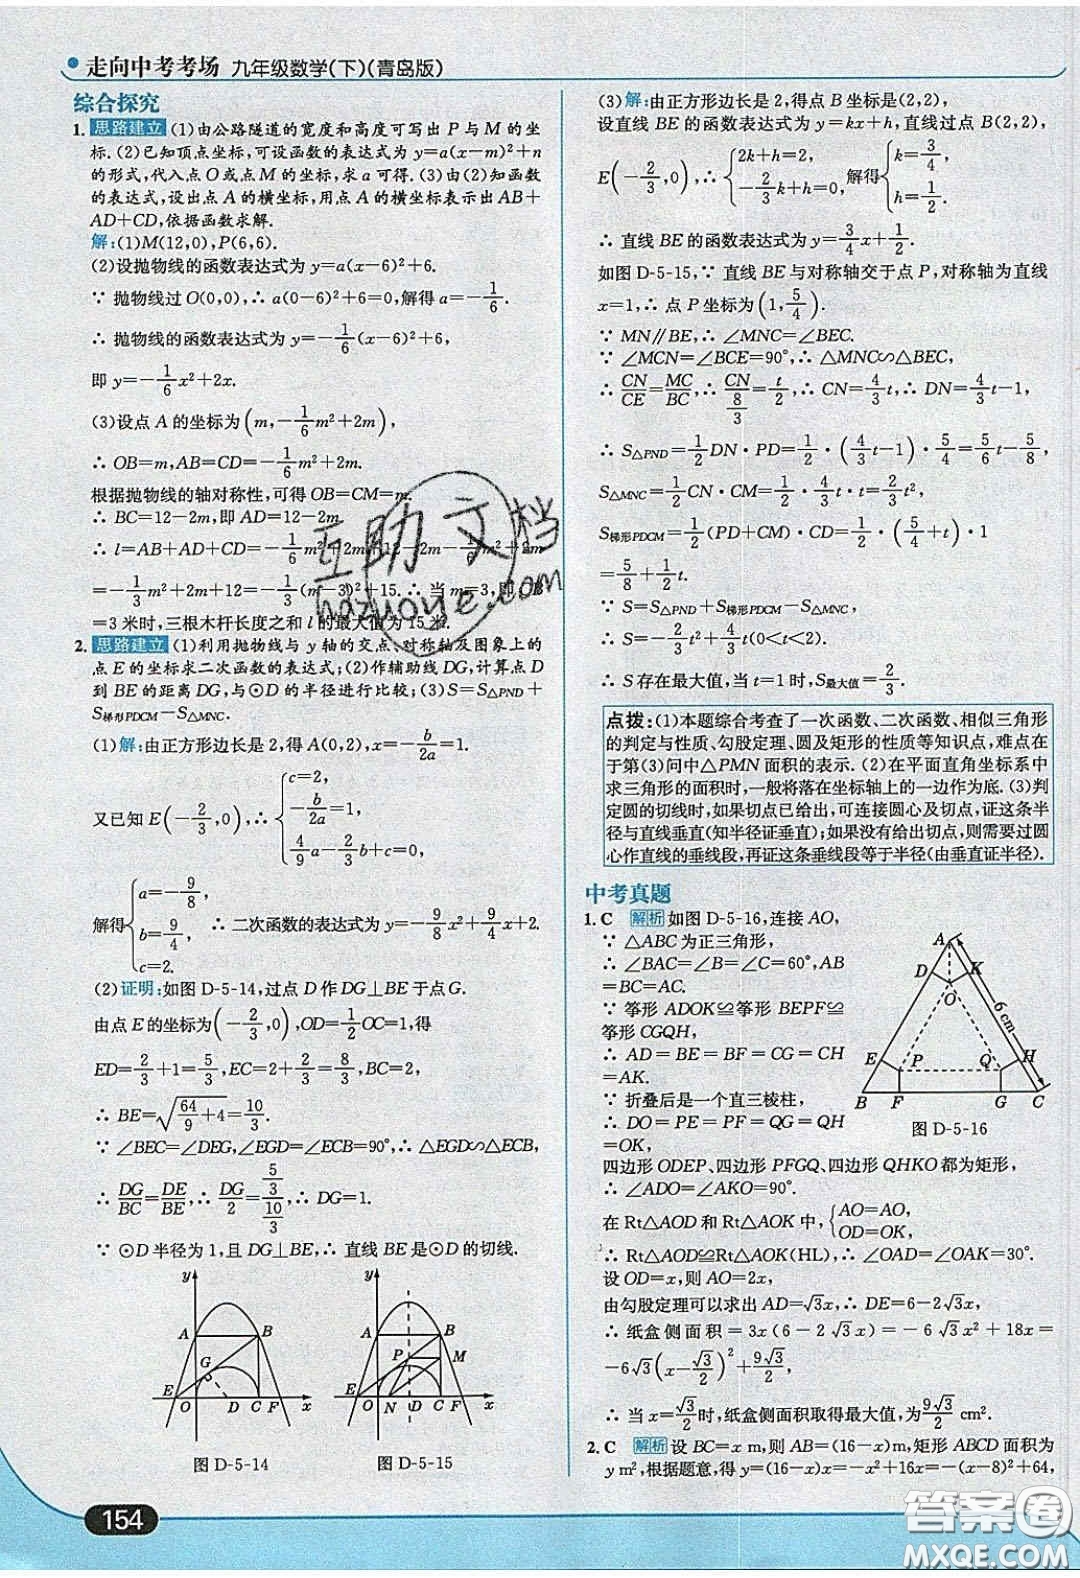 走向中考考场 九年级数学(下)(青岛版)
综合探究
1. 思路建立 (1)由公路隧道的宽度和高度可写出 P 与 M 的坐
标.(2)已知顶点坐标,可设函数的表达式为 y=a(x-m)²+n
的形式,代入点 O 或点 M 的坐标,求 a 可得.(3)由(2)知函数
的表达式,设出点 A 的横坐标,用点 A 的横坐标表示出 AB+
AD+CD,依据函数求解.
解:(1)M(12,0),P(6,6).
(2)设抛物线的函数表达式为 y=a(x-6)²+6.
∵ 抛物线过 O(0,0),∴ a(0-6)²+6=0,解得 a=-1/6.
∴ 抛物线的函数表达式为 y=-1/6(x-6)²+6,
即 y=-1/6x²+2x.
(3)设点 A 的坐标为(m,-1/6m²+2m),
∴ OB=m,AB=CD=-1/6m²+2m.
根据抛物线的轴对称性,可得 OB=CM=m.
∴ BC=12-2m,即 AD=12-2m.
∴ l=AB+AD+CD=-1/6m²+2m+12-2m-1/6m²+2m
=-1/3m²+2m+12=-1/3(m-3)²+15.∴ 当 m=3,即 OB
=3 米时,三根木杆长度之和 l 的最大值为 15 米.
2. 思路建立 (1)利用抛物线与 y 轴的交点、对称轴及图象上的
点 E 的坐标求二次函数的表达式;(2)作辅助线 DG,计算点 D
到 BE 的距离 DG,与⊙D 的半径进行比较;(3)S=S△PND+
S梯形PDCM-S△MNC.
(1)解:由正方形边长是 2,得 A(0,2),x=-b/2a=1.
又已知 E(-2/3,0),∴ {c=2, -b/2a=1, 4/9a-2/3b+c=0,
解得{a=-9/8, b=9/4, c=2. ∴ 二次函数的表达式为 y=-9/8x²+9/4x+2.
(2)证明:如图 D-5-14,过点 D 作 DG⊥BE 于点 G.
由点 E 的坐标为(-2/3,0),OD=1/2OC=1,得
ED=2/3+1=5/3,EC=2+2/3=8/3,BC=2,
∴ BE=√(64/9+4)=10/3.
∵ ∠BEC=∠DEG,∠EGD=∠ECB=90°,∴ △EGD∽△ECB,
∴ DG/BC=DE/BE,∴ DG/2=(5/3)/(10/3),∴ DG=1.
∵ ⊙D 半径为 1,且 DG⊥BE,∴ 直线 BE 是⊙D 的切线.
y A B G E O D C F x
图 D-5-14
y A B P M E O N D C F x
图 D-5-15
154
(3)解:由正方形边长是 2,得点 B 坐标是(2,2),
设直线 BE 的函数表达式为 y=kx+h,直线过点 B(2,2),
E(-2/3,0),∴ {2k+h=2, -2/3k+h=0, 解得{k=3/4, h=1/2.
∴ 直线 BE 的函数表达式为 y=3/4x+1/2.
如图 D-5-15,∵ 直线 BE 与对称轴交于点 P,对称轴为直线
x=1,∴ 点 P 坐标为(1,5/4).
∵ MN∥BE,∴ ∠MNC=∠BEC.
∵ ∠MCN=∠BCE=90°,∴ △MNC∽△BEC,
∴ CN/CE=MC/BC,∴ CN/(8/3)=t/2,∴ CN=4/3t,∴ DN=4/3t-1,
∴ S△PND=1/2DN·PD=1/2·(4/3t-1)·5/4=5/6t-5/8,
S△MNC=1/2CN·CM=1/2·4/3t·t=2/3t²,
S梯形PDCM=1/2(PD+CM)·CD=1/2·(5/4+t)·1
=5/8+1/2t.
∵ S=S△PND+S梯形PDCM-S△MNC,
∴ S=-2/3t²+4/3t(0<t<2).
∴ S 存在最大值,当 t=1 时,S最大值=2/3.
点拨:(1)本题综合考查了一次函数、二次函数、相似三角形
的判定与性质、勾股定理、圆及矩形的性质等知识点,难点在
于第(3)问中△PMN 面积的表示.(2)在平面直角坐标系中
求三角形的面积时,一般将落在坐标轴上的一边作为底.(3)判
定圆的切线时,如果切点已给出,可连接圆心及切点,证这条半
径与直线垂直(知半径证垂直);如果没有给出切点,则需要过圆
心作直线的垂线段,再证这条垂线段等于半径(由垂直证半径).
中考真题
1. C 解析 如图 D-5-16,连接 AO,
∵ △ABC 为正三角形,
∴ ∠BAC=∠B=∠C=60°,AB
=BC=AC.
∵ 筝形 ADOK≌筝形 BEPF≌
筝形 CGQH,
∴ AD=BE=BF=CG=CH
=AK.
∵ 折叠后是一个直三棱柱,
∴ DO=PE=PF=QG=QH
=OK,
四边形 ODEP、四边形 PFGQ、四边形 QHKO 都为矩形,
∴ ∠ADO=∠AKO=90°.
A D K O 6 cm E P Q H B F G C
图 D-5-16
在 Rt△AOD 和 Rt△AOK 中,{AO=AO, OD=OK,
∴ Rt△AOD≌Rt△AOK(HL),∴ ∠OAD=∠OAK=30°.
设 OD=x,则 AO=2x,
由勾股定理可以求出 AD=√3x,∴ DE=6-2√3x,
∴ 纸盒侧面积=3x(6-2√3x)=-6√3x²+18x=
-6√3(x-√3/2)²+9√3/2,
∴ 当 x=√3/2时,纸盒侧面积取得最大值,为9√3/2 cm².
2. C 解析 设 BC=x m,则 AB=(16-x)m,矩形 ABCD 面积为
y m²,根据题意,得 y=(16-x)x=-x²+16x=-(x-8)²+64,
互助文档
hazuoye.com
答案圈
MXQE.COM